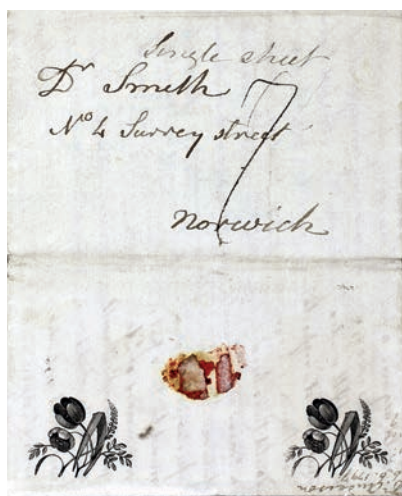 Single sheet
Dr Smith
7
No 4 Surrey street
Norwich